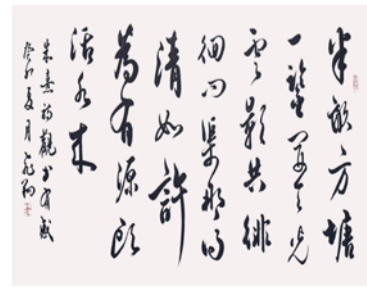 半畝方塘
一鑒開天光
雲影共徘
徊問渠那得
清如許
為有源頭
活水來
朱熹詩觀書有感
癸卯夏月